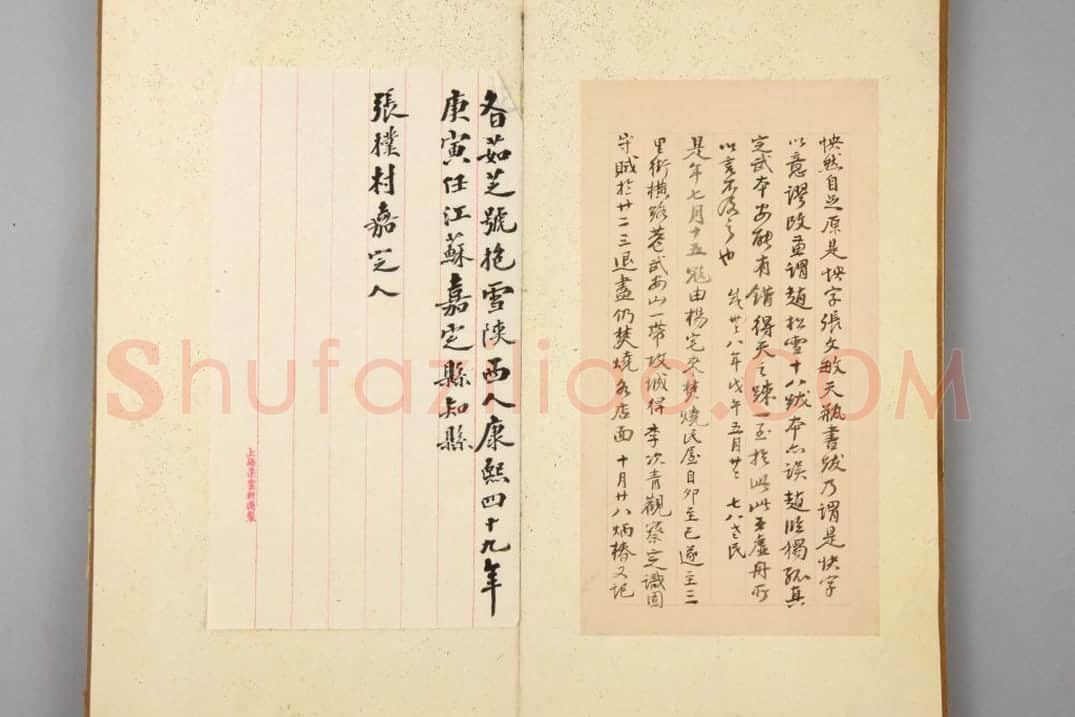 怏然自足原是怏字張文敏天瓶書跋乃謂是快字
以意謬改並謂趙松雪十八跋本亦誤趙臨獨孤真
定武本安能有錯得天之疎一至於此此玉虛舟所
以言不及之也
咸豐八年戊午五月廿 七八老民
是年七月十五寇由楊宅來焚燒民屋自卯至巳遂主三
里街橫路巷武安山一帶攻城得李次青觀察定識固
守賊於廿二三退盡仍焚燒各店面 十月廿八炳椿又記
昝茹芝號抱雪陝西人康熙四十九年
庚寅任江蘇嘉定縣知縣
張樸村嘉定人
Shufaziliao.COM